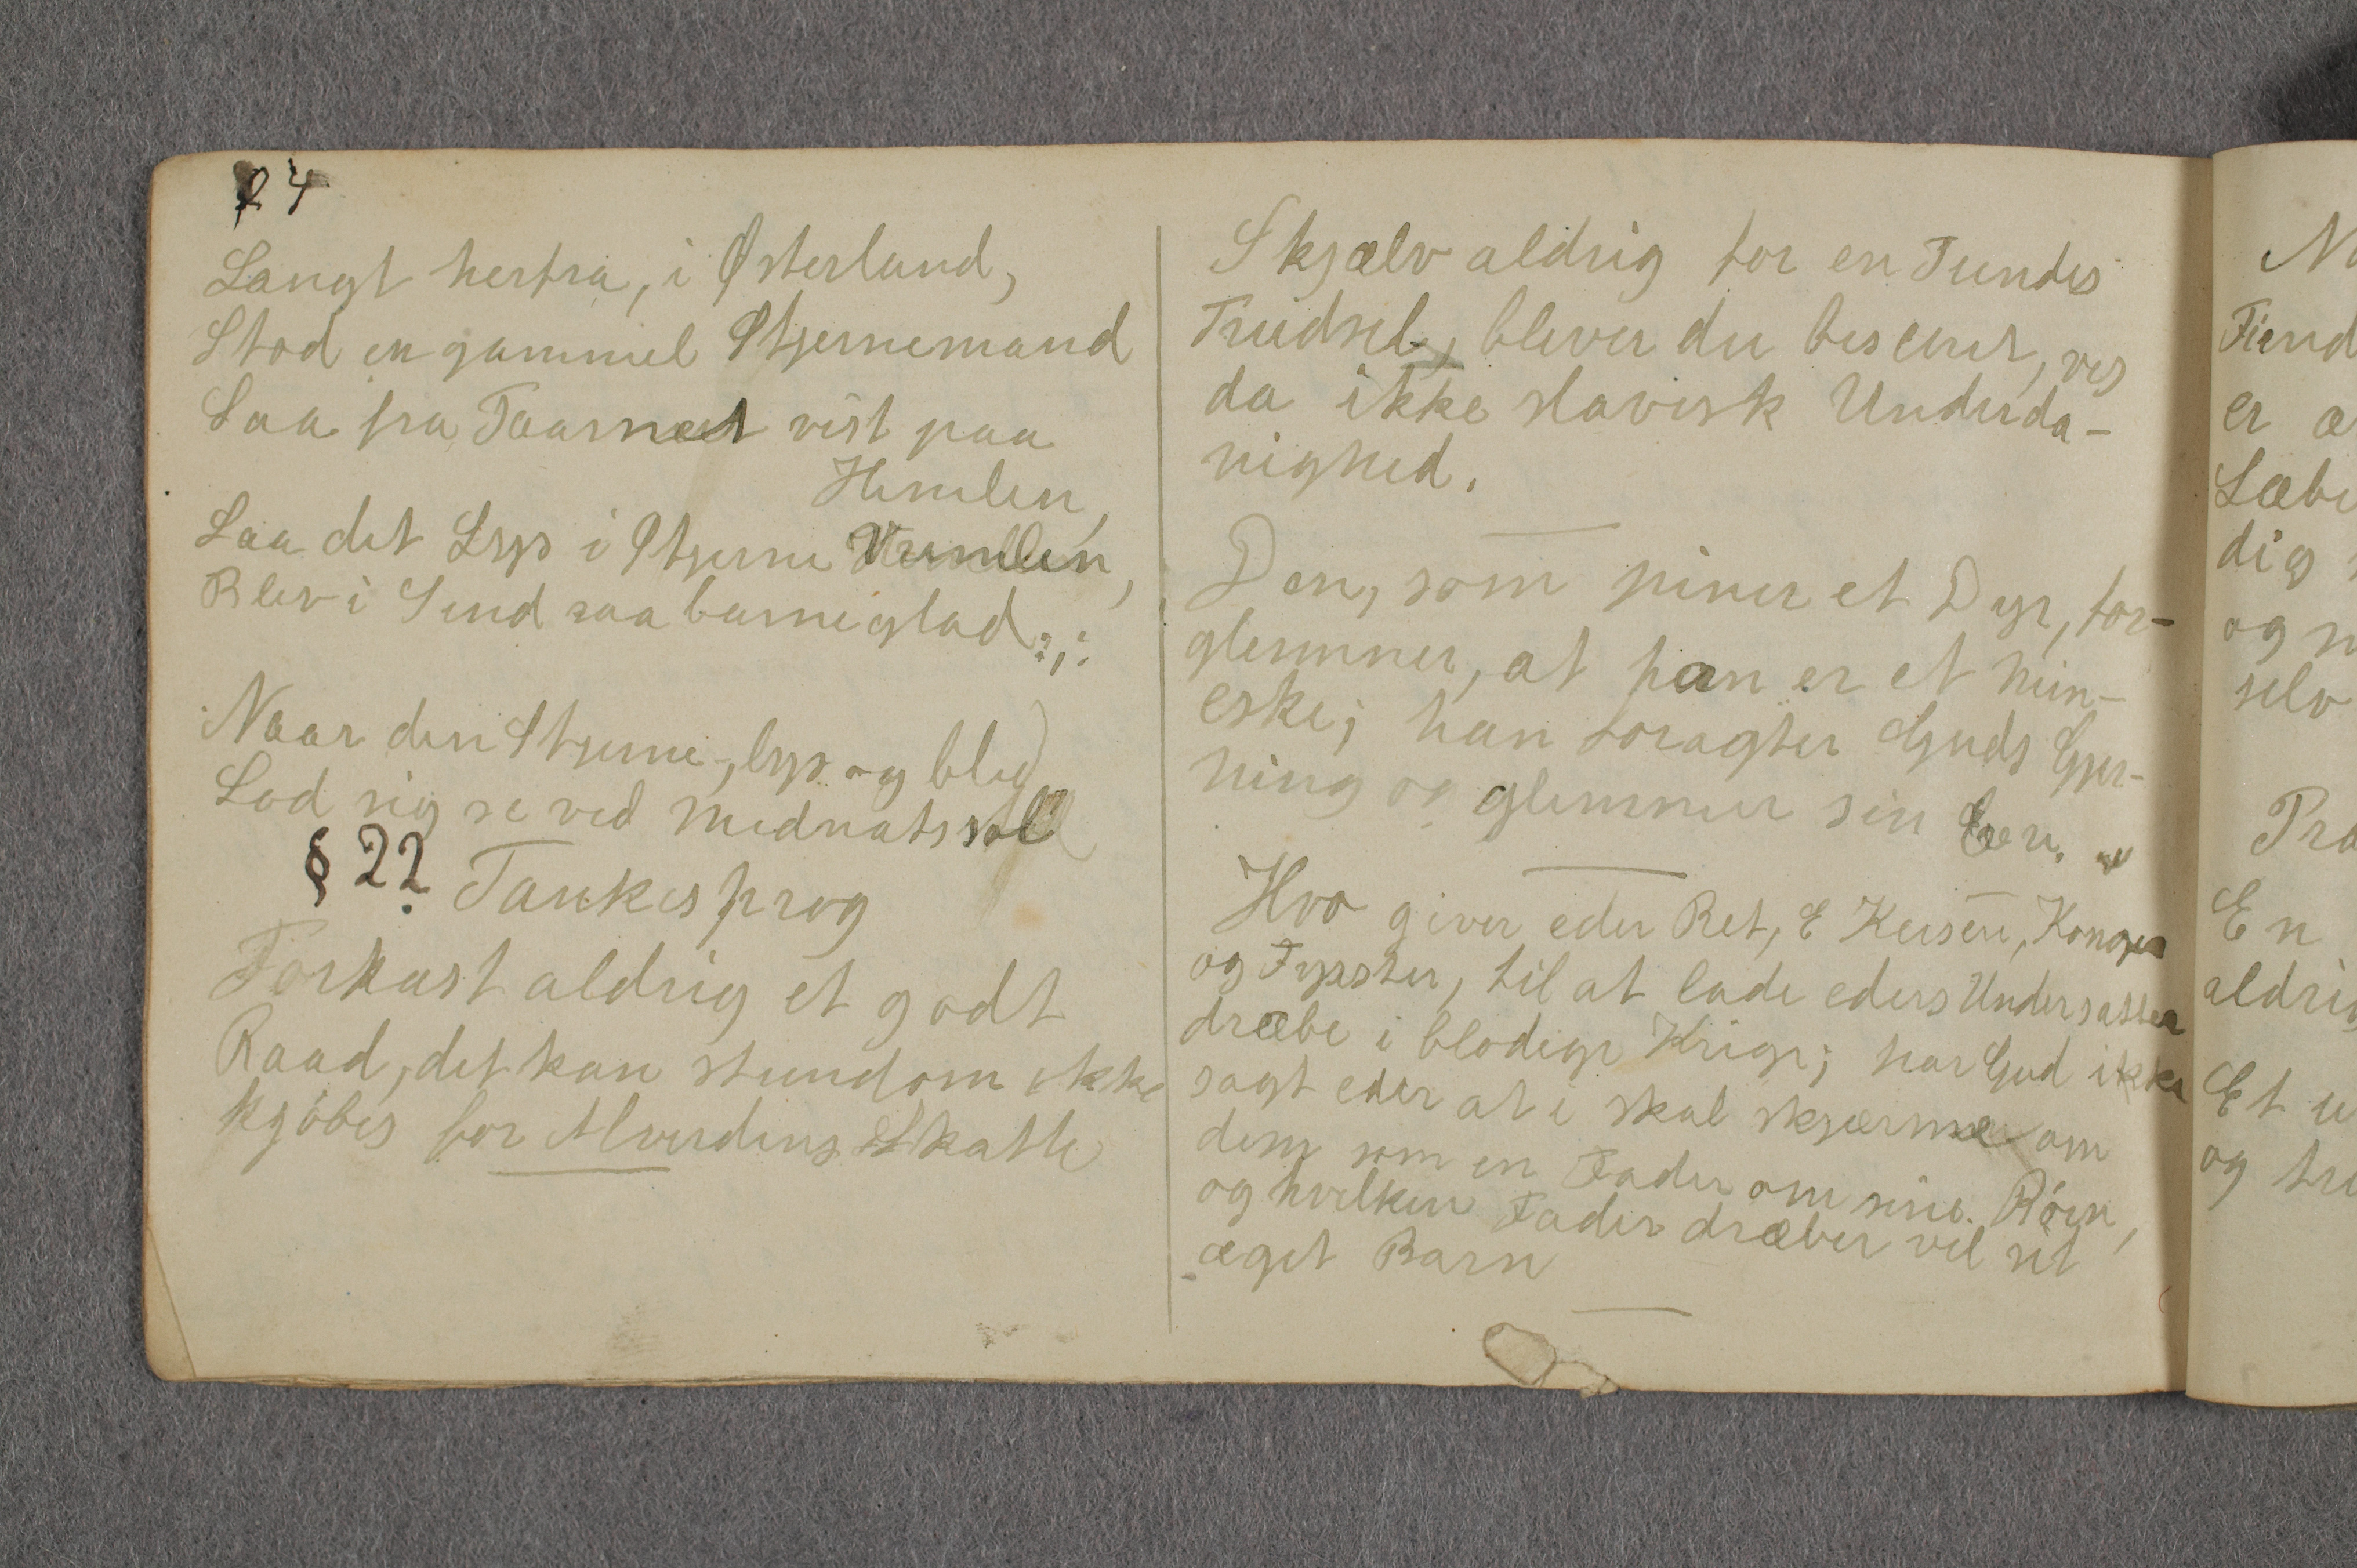 24
Langt herfra, i Østerland,
Stod en gammel Stjernemand
Saa fra Taarnet vist paa
Himlen,
Saa det Lys i Stjerne Vrimlen,
Blev i Sind saa barneglad:,:
Naar den Stjerne, lys og blid
Lod sig se ved Midnatssol
§ 22. Tankesprog
Forkast aldrig et godt
Raad, det kan stundom ikke
kjöbes for Alverdens Skatte
Skjælv aldrig for en Fiendes
Trudsel, bliver du beseiret, vis
da ikke slavisk Underda-
nighed.
Den, som piner et Dyr, for-
glemmer, at han er et Min-
eske; han foragter Guds Gjer-
ning og glemmer sin
Hvo giver eder Ret, E Keisere, Konger
og Fyrster, til at lade eders Undersatter
dræbe i blodige Krige; har Gud ikke
sagt eder at i skal skjærme om
dem som en Fader om sine Börn,
og hvilken Fader dræber vel sit
eget Barn
Fiend
er
Læbe
dig
og
selv
En
aldrig
Et
og